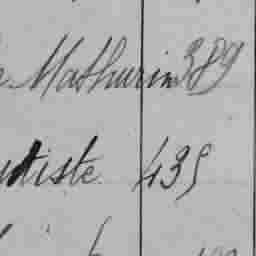 Mathurin 389
tiste 435